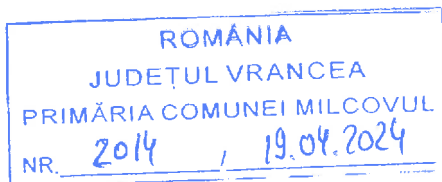 ROMÂNIA
JUDEȚUL VRANCEA
PRIMĂRIA COMUNEI MILCOVUL
NR. 2014 / 19.04.2024